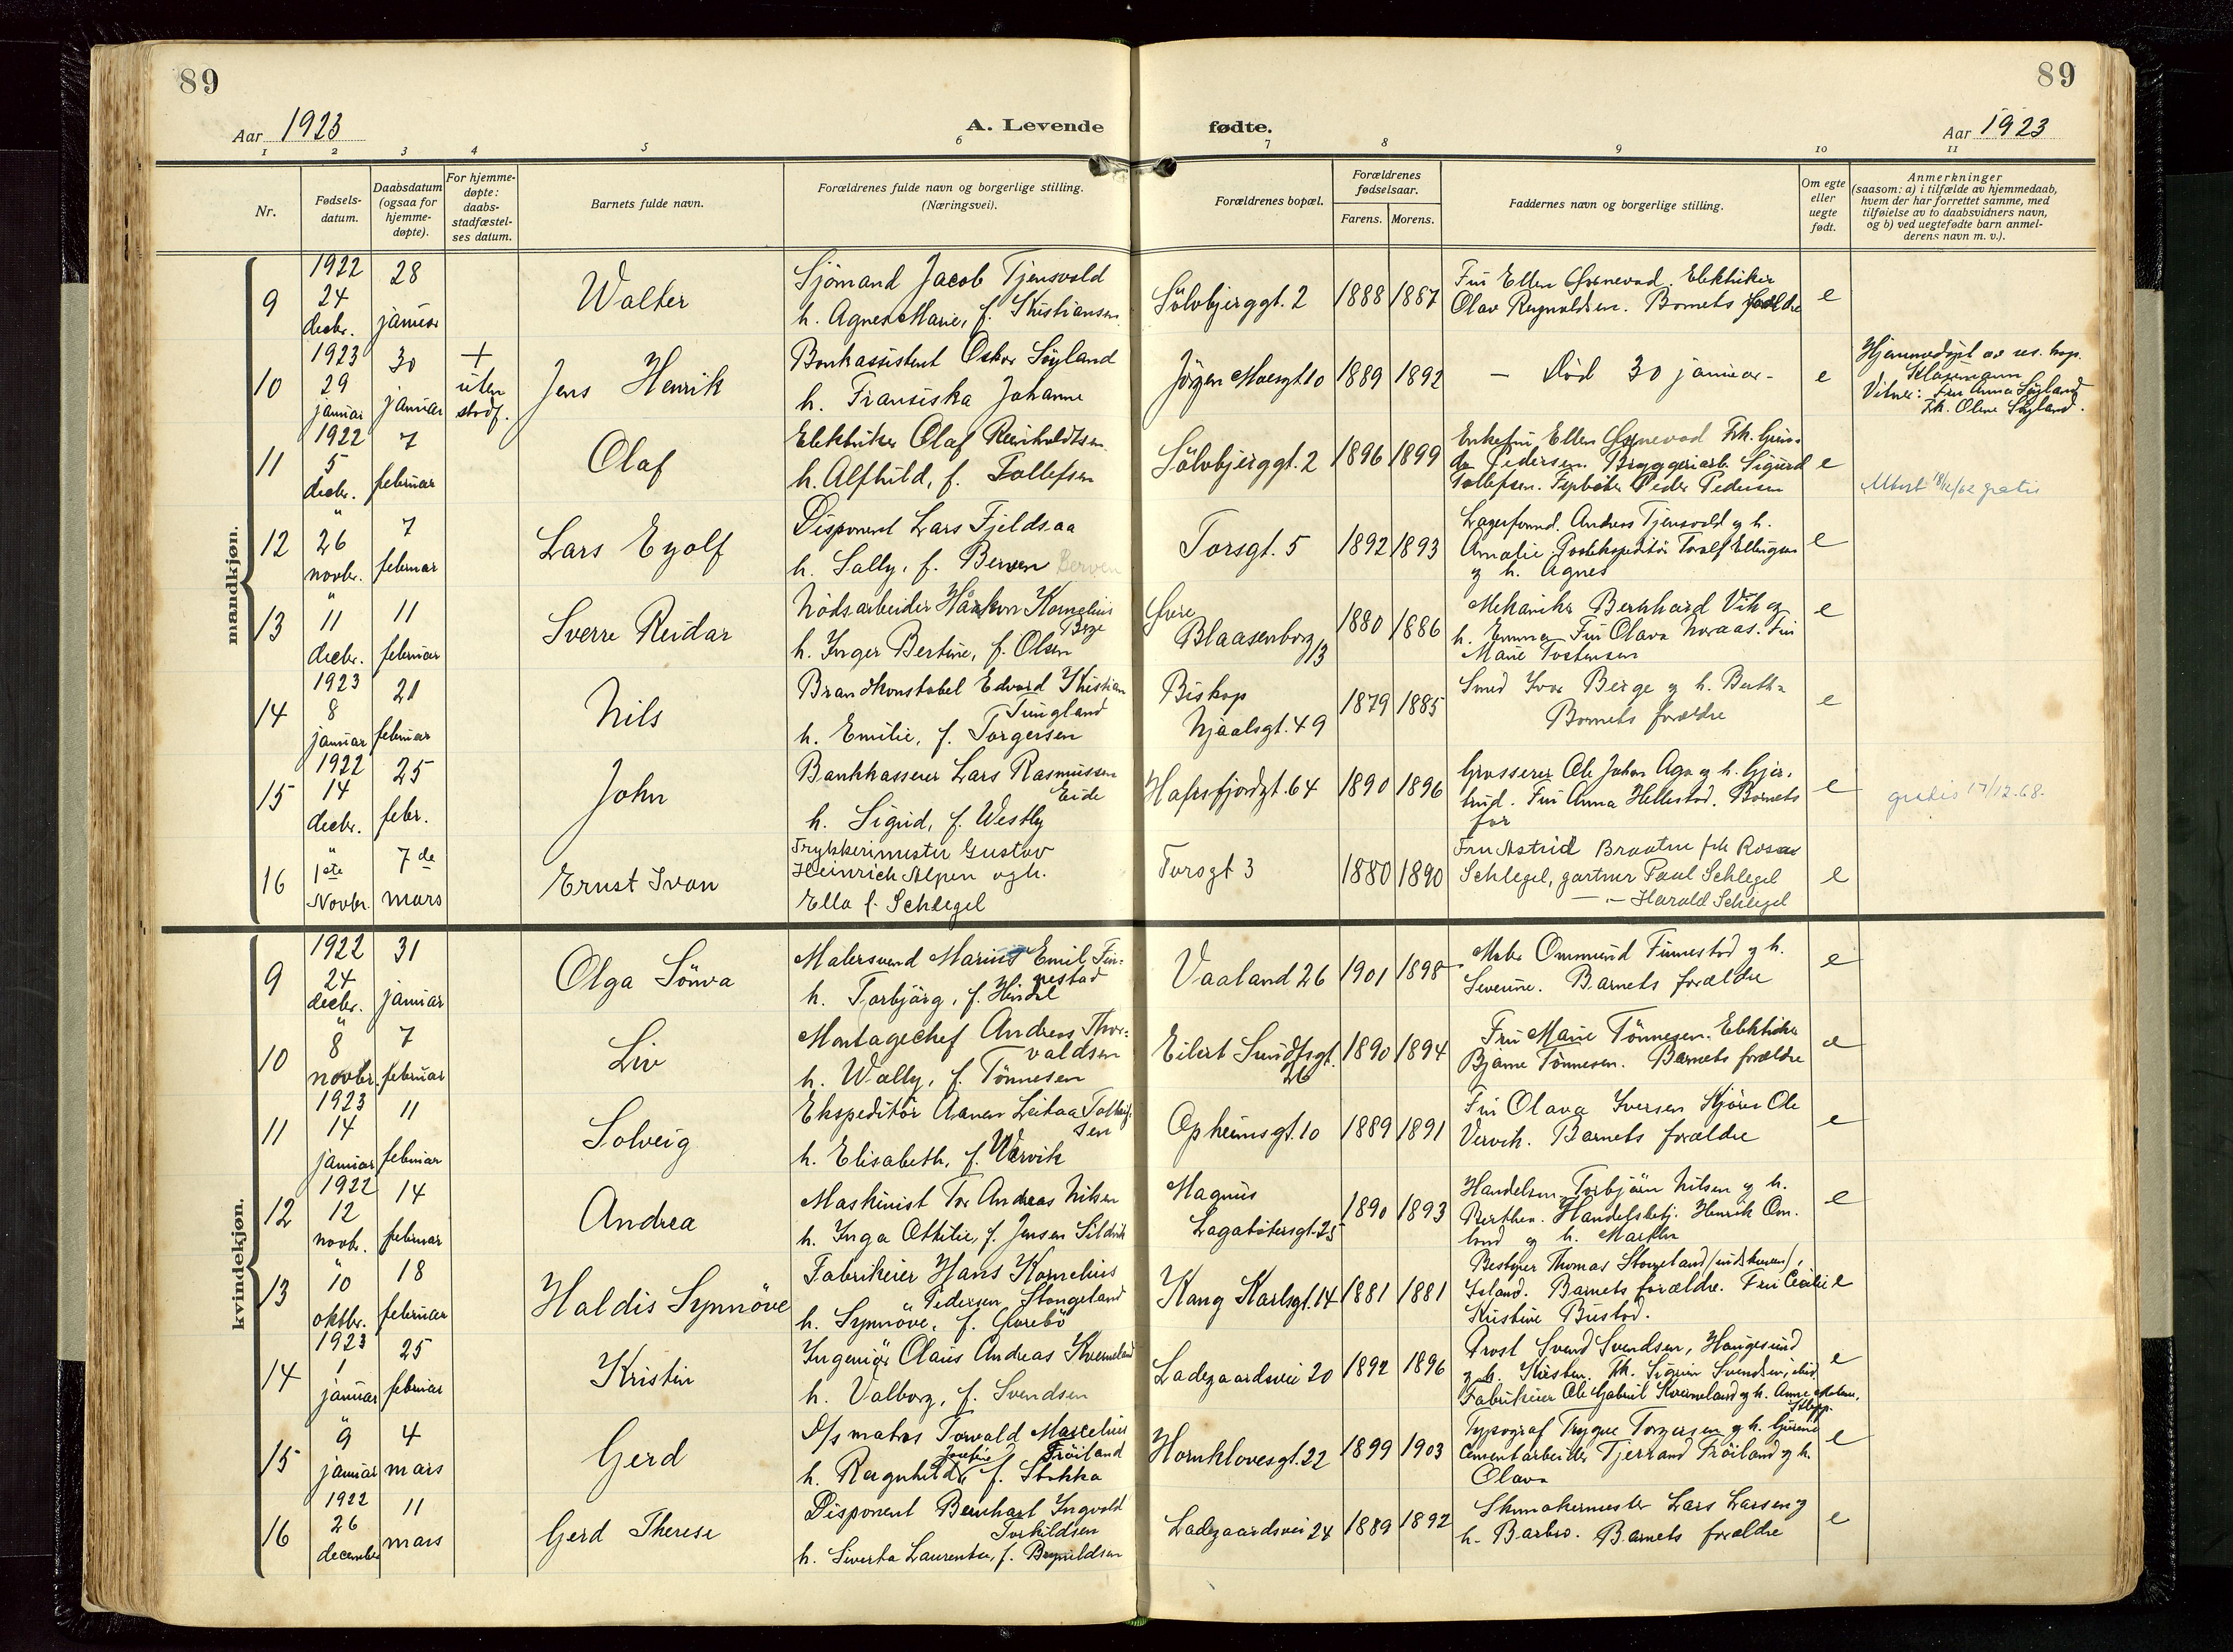 89
89
Aar 1923
A. Levende fødte.
Aar 1923
1 2 3 4 5 6 7 8 9 10 11
Nr.
Fødsels-
datum.
Daabsdatum
(ogsaa for
hjemme-
døpte).
For hjemme-
døpte:
daabs-
stadfæstel-
ses datum.
Barnets fulde navn.
Forældrenes fulde navn og borgerlige stilling.
(Næringsvei).
Forældrenes bopæl.
Forældrenes
fødselsaar.
Farens. Morens.
Faddernes navn og borgerlige stilling.
Om egte
eller
uegte
født.
Anmerkninger
(saasom: a) i tilfælde av hjemmedaab,
hvem der har forrettet samme, med
tilføielse av to daabsvidners navn,
og b) ved uegtefødte barn anmel-
derens navn m. v.).
mandkjøn.
9
1922
24
decbr.
28
januar
Walter
Sjömand Jacob Tjensvold
h. Agnes Marie, f. Kristiansen
Sölvbjerggt. 2
1888 1887
Fru Ellen Elektriker
Olav Reynoldsen. Barnets forældre
e
10
1923
29
januar
30
januar
+
uten
stadf.
Jens Henrik
Bankassistent Oskar Söyland
h. Fransiska Johanne
Jörgen Moesgt. 10
1889 1892
- Död 30 januar -
e
Hjemmedöpt av res. kap.
Vitne: Fru Anna Söyland
Frk. Oline Söyland.
11
1922
5
decbr.
7
februar
Olaf
Elektriker Olaf Reinholdtsen
h. Alfhild, f. Tollefsen
Sölvbjerggt. 2
1896 1899
Enkefru Ellen Frk. Gun-
da Pedersen. Bryggeriarb. Sigurd
Tollefsen. Peder Pedersen
e
Attest 18/12/62 gratis
12
"
26
novbr.
7
februar
Lars Eyolf
Disponent Lars Fjeldsaa
h. Sally, f. Berven Berven
Torsgt. 5
1892 1893
Lagerformd. Andreas Tjensvold og h.
Amalie. Postekspeditör Toralf Ellingsen
og h. Agnes
e
13
"
11
decbr.
11
februar
Sverre Reidar
Nödsarbeider Haakon Kornelius
Berge
h. Inger Bertine, f. Olsen
Övre
Blaasenborg
13
1880 1886
Mekaniker Bernhard Vik og
h. Emma. Fru Olava Noraas. Fru
Marie Tostensen
e
14
1923
8
januar
21
februar
Nils
Brandkonstabel Edvard Kristian
Tungland
h. Emilie, f. Torgersen
Biskop
Njaalsgt. 49
1879 1885
Smed Ivar Berge og h. Berth-
Barnets forældre
e
15
1922
14
decbr.
25
febr.
John
Bankkasserer Lars Rasmussen
Eide
h. Sigrid, f. Westly
Hafrsfjordgt. 64
1890 1896
Grosserer Ole Johan Aga og h. Gjer-
trud. Fru Anna Hellestad. Barnets
far
e
gratis 17/12.68.
16
"
1ste
Novbr
7de
mars
Ernst Ivan
Trykkerimester Gustav
Heinrich Alpen og h.
Ella f. Schlegel
Torsgt 3
1880 1890
Fru Astrid Braatne frk Rosa
Schlegel, gartner Paul Schlegel
— " — Harald Schlegel
e
kvindekjøn.
9
1922
24
decbr.
31
januar
Olga Sönva
Malersvend Marius Emil Fin-
nestad
h. Torbjörg, f.
Vaaland 26
1901 1898
Maler Ommund Finnestad og h.
Severine. Barnets forældre
e
10
"
8
novbr.
7
februar
Liv
Montagechef Andreas Thor-
valdsen
h. Wally, f. Tönnesen
Eilert Sundtsgt.
26
1890 1894
Fru Marie Tönnesen. Elektriker
Bjarne Tönnesen. Barnets forældre
e
11
1923
14
januar
11
februar
Solveig
Ekspeditör Aanen
sen
h. Elisabeth, f. Vervik
Opheimsgt. 10
1889 1891
Fru Olava Iversen Ole
Vervik. Barnets forældre
e
12
1922
12
novbr.
14
februar
Andrea
Maskinist Tor Andreas Nilsen
h. Inga Ottilie, f. Jensen
Magnus
Lagabötersgt. 25
1890 1893
Handelsm. Torbjörn Nilsen og h.
Berthea. Handelsbetj. Henrik Om-
lund og h. Martha
e
13
"
10
oktbr.
18
februar
Haldis Synnöve
Fabrikeier Hans Kornelius
Pedersen Stangeland
h. Synnöve, f.
Kong Karlsgt. 14
1881 1881
Bestyrer Thomas Stangeland
Island. Barnets forældre. Fru Cecilie
Kristine Bustad.
e
14
1923
1
januar
25
februar
Kristin
Ingeniör Olaus Andreas Kverneland
h. Valborg, f. Svendsen
Ladegaardsvei 20
1892 1896
Prost Svend Svendsen, Haugesund
og h. Kirsten. Frk. Sigrun Svendsen, ibid.
Fabrikeier Ole Gabriel Kverneland og h. Anne Malene,
Klepp.
e
15
"
9
januar
4
mars
Gerd
D/s matros Torvald Marcelius
Fröiland
h. Ragnhild Josefine f. Stokka
Hornklovesgt. 22
1899 1903
Typograf Trygve Torgersen og h. Gunne
Cementarbeider Tjerrand Fröiland og h.
Olava
e
16
1922
26
december
11
mars
Gerd Therese
Disponent Bernhart Ingvald
Torkildsen
h. Siverta Laurentse, f. Brynildsen
Ladegaardsvei 24
1889 1892
Skomakermester Lars Larsen og
h. Barbro. Barnets forældre
e